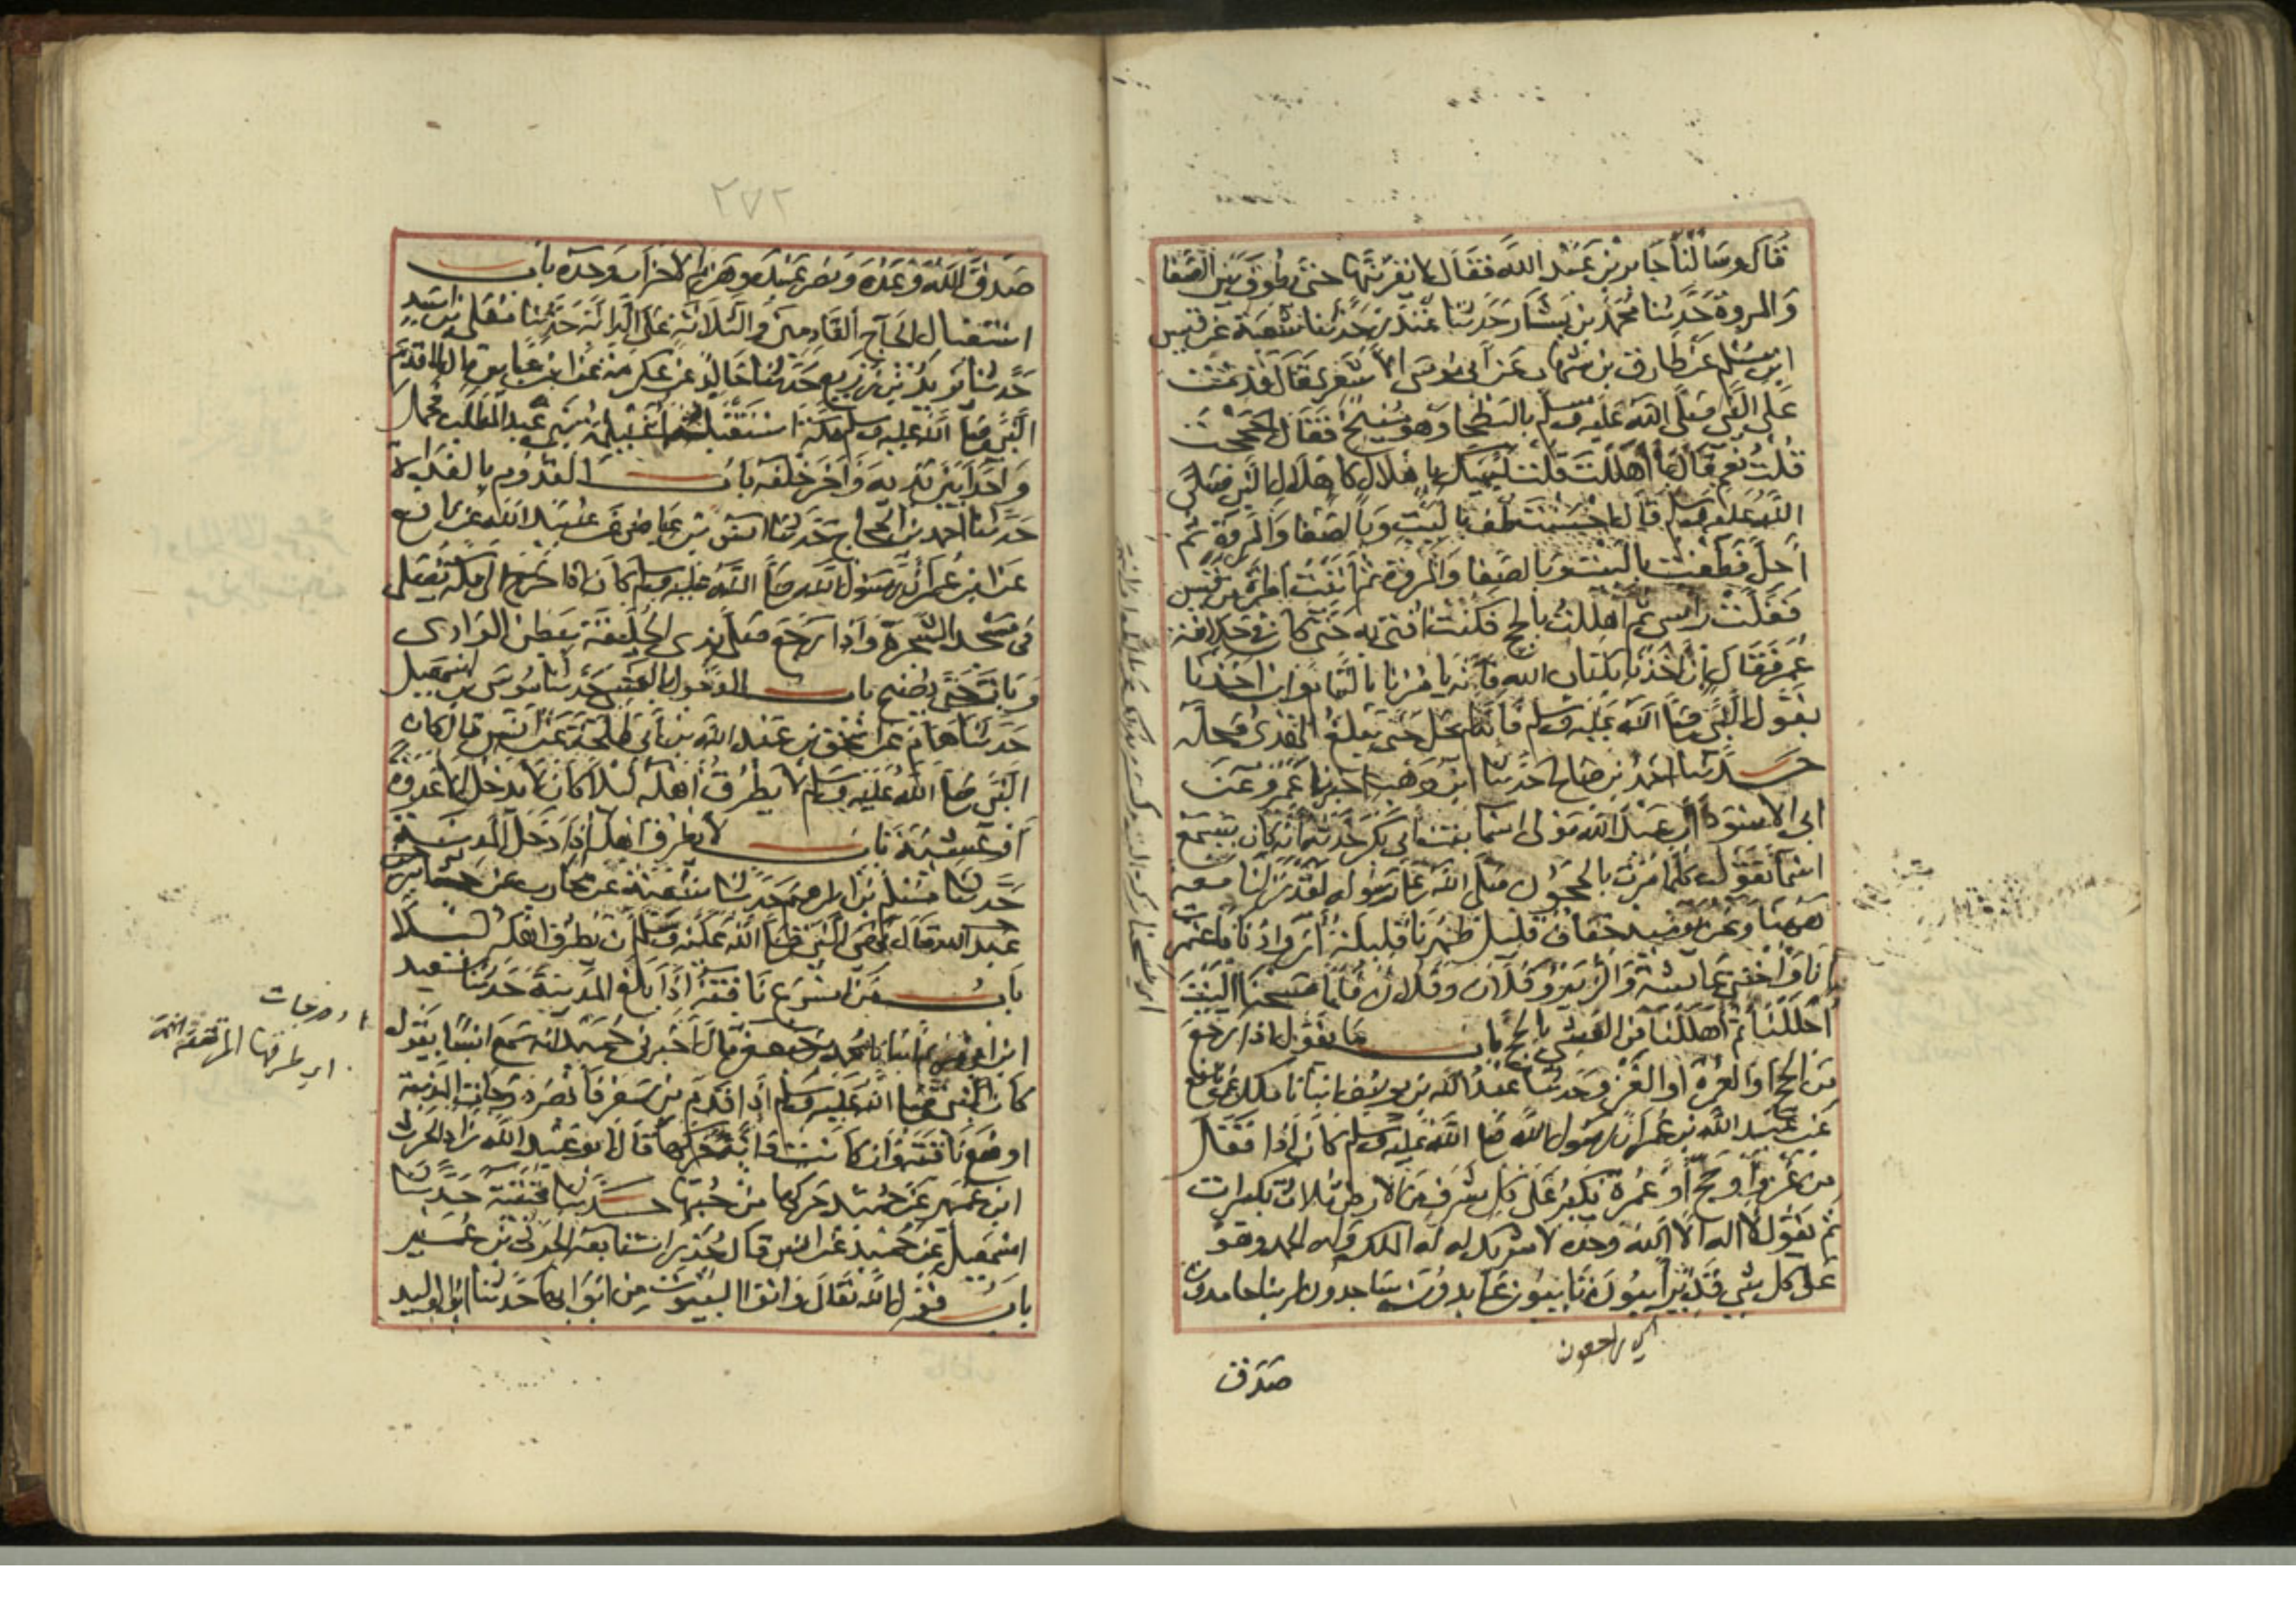 قَالَ وسَالنَا جَابر بْن عَبْد الله فقَال لا يقربَنّها حتى يطُوفَ بَين الصَّفا
وَالمروة حَدَّثنا محمَّد بن بَشَّار حَدثنا غنْدَر حَدّثنا شعبَة عَن قيس
ابن مسْلم عَن طارق بن شهاب عَن ابى مُوسَى الاشعَرى قَال قدمت
عَلى النَّبى صَلى الله عَليْه وسلم بالبَطْحا وَهو مُنيخ فقَال احججت
قُلْتُ نعَم قَالَ بمَا أهْلَلتَ قُلت لَبَّيْكَ باهْلال كاهْلال النّبى صَلى
الله عَليه وسلم قَالَ احْسَنْتَ طف بالبَيْتِ وَبالصَّفا وَالمروَة ثم
أحلّ فطفت بالبيت وبالصَّفا وَالمروة ثم أتَيْتُ امرأة من قيس
فَفَلَتْ رَاسى ثم اهللت بالحج فكنت افتى به حَتى كانَ فى خلافة
عُمر فقَال إنْ أخذنا بكتاب الله فَإنّه يَامُرنا بالتمَام وَان اخَذنا
بقَول النَّبى صَلى الله عَليْه وسلم فَانه لم يحل حَتى يَبْلغ الهَدْى مَحِلّه
حَدّثنا احمَدُ بن صَالح حَدّثنا ابْن وَهْب اخبرنا عَمرو عَن
ابى الاسْوَد اَنّ عَبْدَ الله مَولى اسْما بنت ابى بَكر حَدّثه انه كان يَسمَع
اسْمَا تَقُول كلمَا مَرّتْ بالحجُون صَلى الله عَلى رَسُوله لَقَدْ نَزَلْنَا مَعه
هَهُنا وَنحن يَومَئِذ خِفافٌ قليل ظهْرنا قَلِيلة أزوادُنا فاعتمرت
اَنَا وَاختى عَائشة وَالزبير وَفُلان وفلان فَلما مَسَحْنا البَيْتَ
اَحْلَلْنَا ثم أهْلَلنا مِن العَشِى بالحج بَاب مَا يقول اذا رَجَعَ
مِنَ الحج اوَالعمرة أو الغَزو حَدثنا عَبْدُ الله بن يوسف انبانا مَالك عَن نَافع
عَن عَبْد الله بن عُمر اَنّ رسُول الله صَلى الله عَليْه وسلم كان إذا قفَلَ
من غَزو أو حَج أو عُمْرَة يكَبّر عَلى كل شرف مِن الارض ثلاث تكبيرات
ثم يَقُول لا اله الا الله وَحْدَه لا شريك له له الملك وَله الحمد وَهو
عَلى كل شى قَدِير آيبُون تَائِبُون عَابدون سَاجدون لربنا حامدون
اى راجعون
صَدَق
٢٧٢
صَدَق الله وَعْدَه وَنصَر عَبْدَه وهَزم الاحزاب وَحْدَه بَاب
اسْتقبَال الحَآج القَادمينَ وَالثلاثة عَلى الدابّة حَدّثنا مُعَلى بن اسَد
حَدّثنا يَزيدُ بْن زُرَيع حَدّثنا خَالد عَن عكرمَة عَن ابْن عَبّاس قَال لما قدم
النَّبى صَلى الله عليه وسلم مكة اسْتَقبَلته اُغَيْلمة بَنى عَبد المطلب فحمل
وَاحدًا بَيْن يَدَيه وَآخَرَ خلفه بَاب القدوم بالغَداة
حَدثنا احمد بن الحجاج حَدثنا انس بن عيَاض عَن عُبيْد الله عَن نَافع
عَن ابن عُمر اَنّ رسُول الله صَلى الله عليه وسلم كانَ اذا خَرج الى مكة يُصَلى
فى مَسْجد الشجرَة وَاذا رَجَع صَلى بذى الحُلَيفَة ببَطن الوَادى
وَبَاتَ حَتى يُصْبح بَاب الدّخول بالعشى حَدثنا موسى بن اسمعيل
حَدثنا همّام عَن اسْحٰق بن عَبْد الله بن أبى طَلْحَة عَن انَس قالَ كانَ
النَّبى صَلى الله عليه وسلم لا يَطْرُقُ أهْلَه لَيْلا كانَ لا يَدْخل الا غدوة
أوْ عَشِيّة بَاب لا يَطرق اَهله إذا دَخَل المدينة
حَدّثنا مُسْلم بن ابراهيم حَدّثنا شُعْبَة عَن محارب عَن جابر بن
عَبد الله قَال نهَى النّبى صَلى الله عَليْه وسلم أن يَطرق اهْله لَيْلا
بَاب مَن اسْرَعَ نَاقتَهُ اذا بَلغ المدينَة حَدّثنا سَعيد
ابن ابى مريم انبانا محمد بن جعفر قَالَ اخبَرنى حُمَيْد انه سَمعَ انسًا يَقوله
كانَ النّبى صَلى الله عَليْه وسلم إذا قَدم مِن سَفر فَابْصَر دَرجَات المدينة
اوضَعَ نَاقته وَان كانت دَابة حَرّكها قَال ابو عَبْد الله زاد الحرث
ابن عُمَير عَن حُمَيْد حَرّكها مِنْ حُبّها حَدّثنا قتَيْبَة حَدّثنا
اسْمَعيل عَن حُمَيْد عَن انَس قَال جُدُرات تابَعَهُ الحرث بن عُمَير
بَاب قَوْل الله تعَالى وَاتوا البُيُوتَ مِن ابْوَابهَا حَدّثنا ابُو الوليد
دوحات
اى طرقها المرتفعة